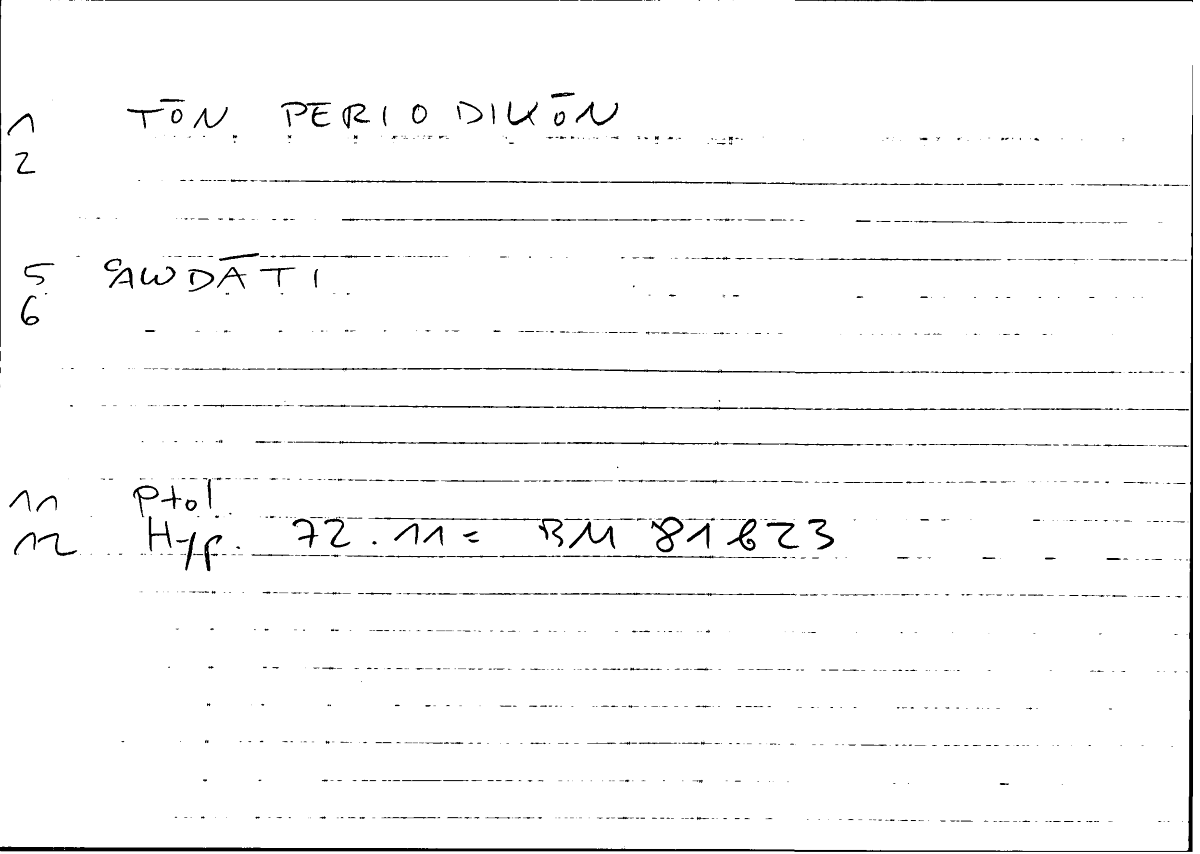 1 TŌN PERIODIKŌN
2
5 ʿAWDĀTI
6
11 Ptol.
12 Hyp. 72.11 = BM 81623